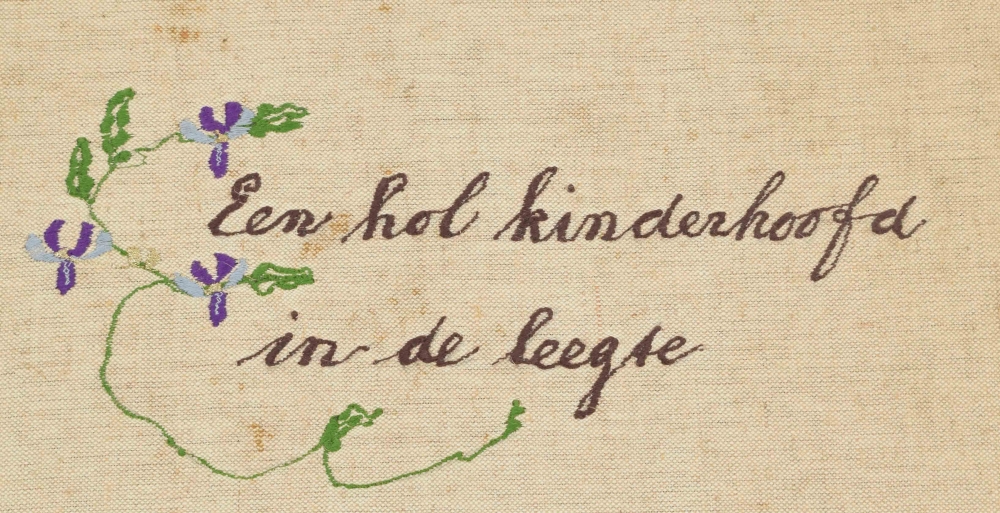 Een hol kinderhoofd
in de leegte